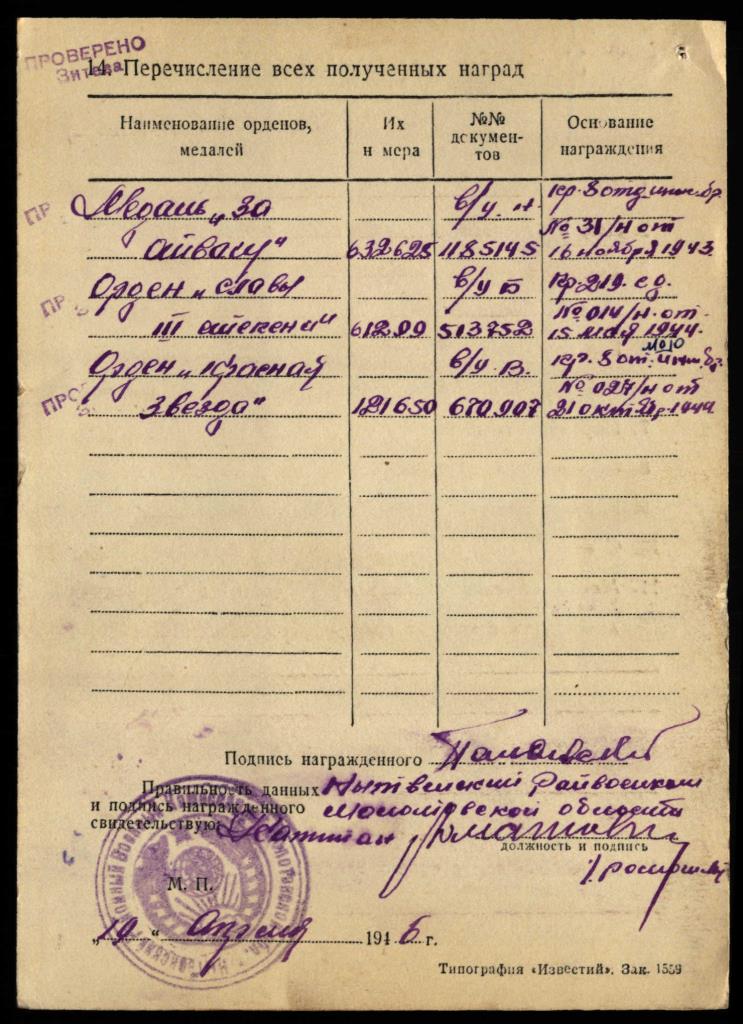 ПРОВЕРЕНО
14. Перечисление всех полученных наград
Наименование орденов, медалей
Их н мера
№№ документов
Основание награждения
Медаль „За в/у А кр. 3 отд. инж. бр.
№ 31/н от
отвагу" 632625 1185145 16 ноября 1943.
Орден „Славы в/у Б кр. 219. сд.
№ 014/н. от.
III степени" 61299 513752 15 мая 1944.
Орден „Красная в/у В. кр. 3 от. инж. бр.
№ 027/н от
Звезда" 121650 670907 21 окт. 1944
Подпись награжденного
Правильность данных Нытвенский Райвоенком
и подпись награжденного Молотовской области
свидетельствую: Капитан
должность и подпись
М. П.
„19" Апреля 1946 г.
Типография «Известий». Зак. 1559